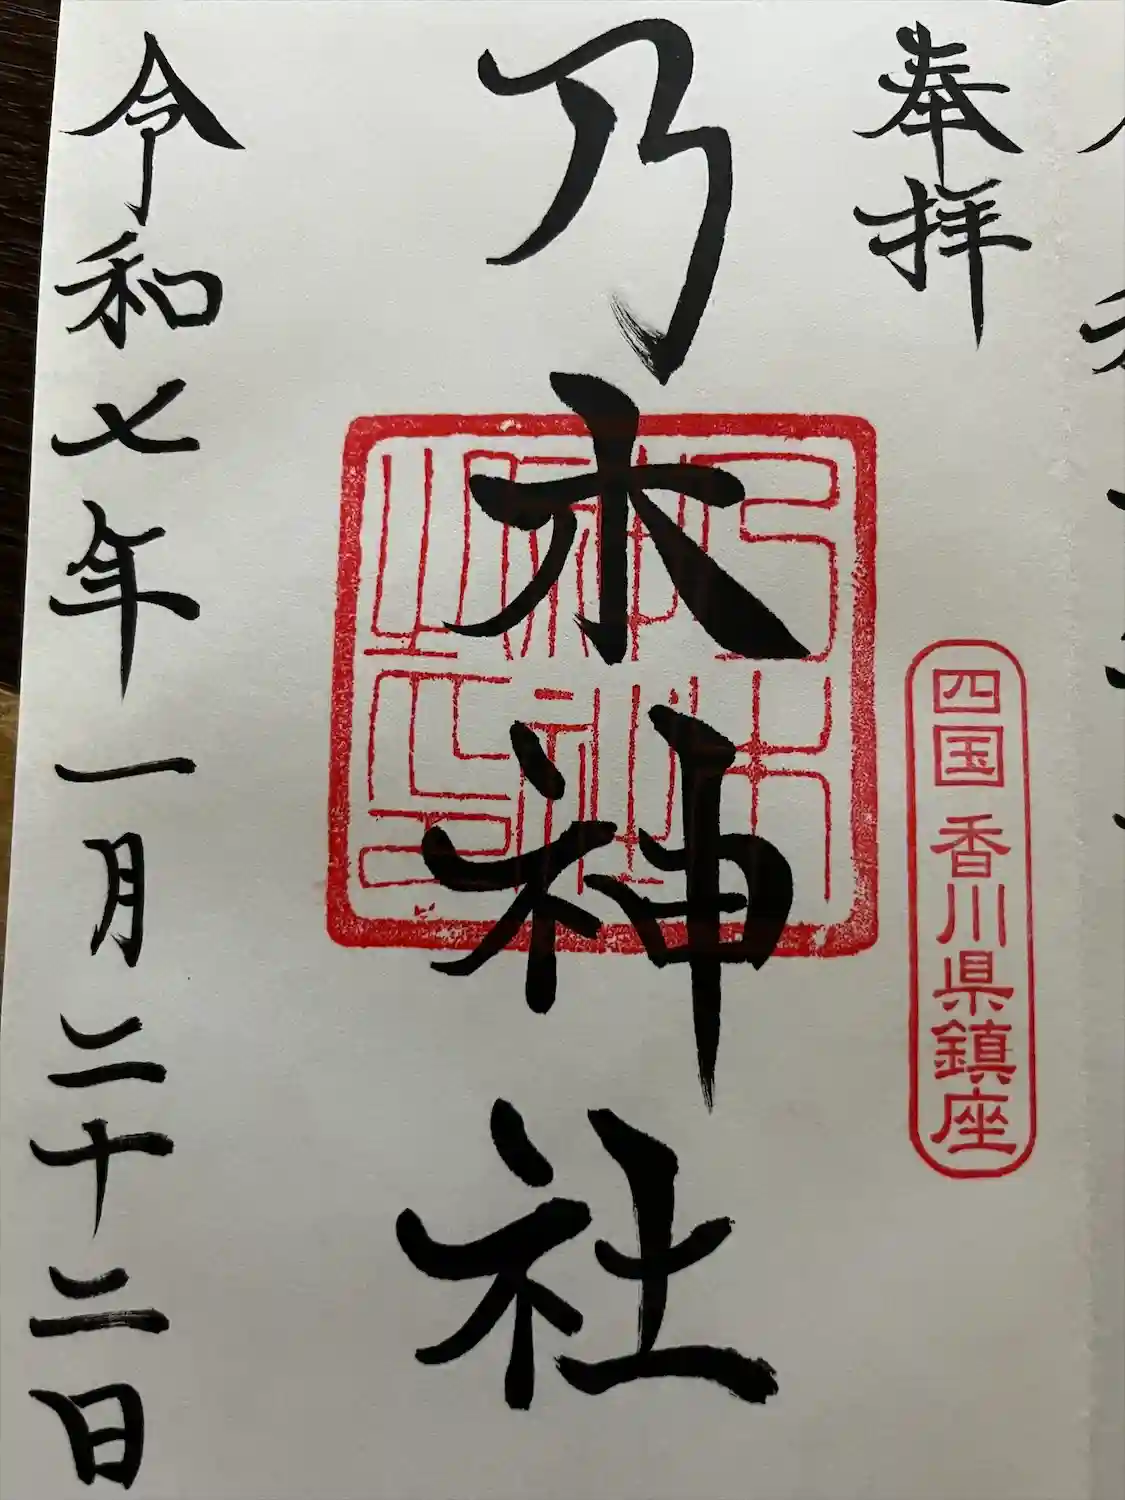 奉拝
四国 香川県鎮座
乃木神社
乃木神社之印
令和七年一月二十二日